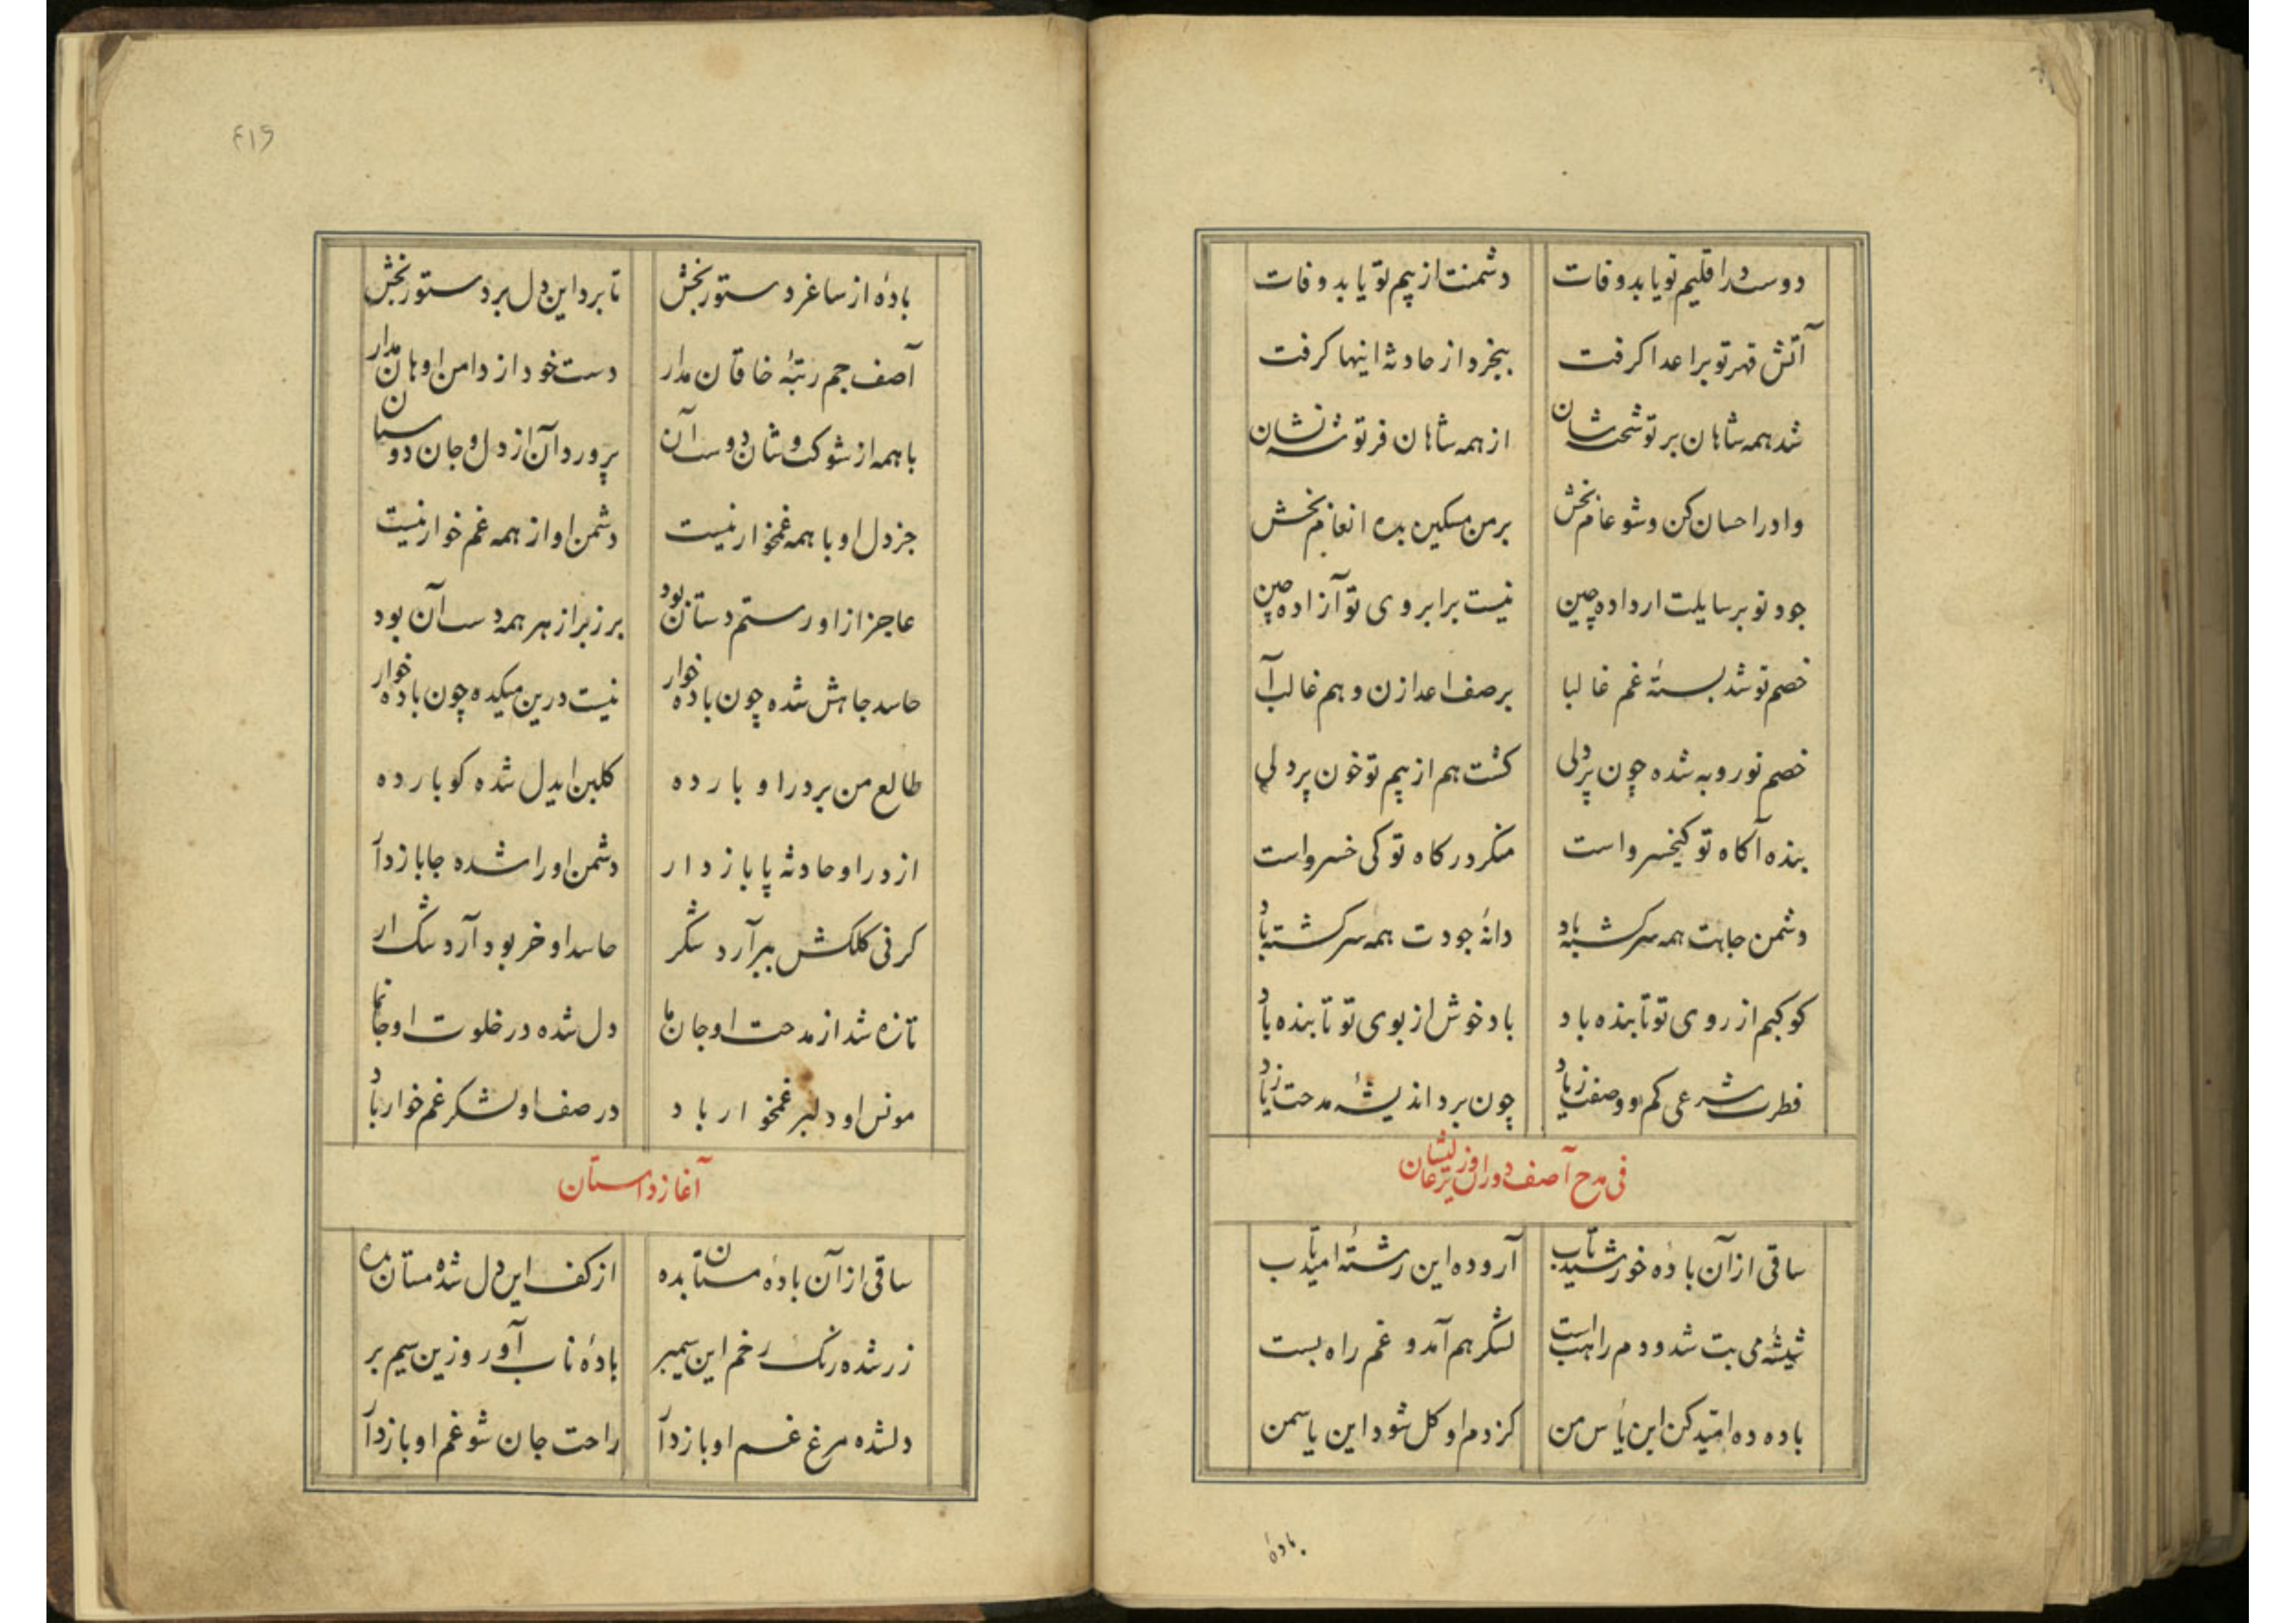 دوست را قلیم تو یابد وفات دشمنت از بیم تو یابد وفات
آتش قهر تو بر اعدا گرفت بیخرد از حادثه اینها گرفت
شد همه شاهان بر تو شان از همه شاهان فر تو شد نشان
داد را حسان کن و شو عام بخش بر من مسکین بده انعام بخش
جود تو بر سایلت ار داده چین نیست بر ابروی تو آزاده چین
خصم تو شد بستهٔ غم غالبا بر صف اعدا زن و هم غالب آ
خصم تو روبه شده چون پر دلی گشت هم از بیم تو خون پر دلی
بنده آگاه تو کیخسرو است منکر درگاه تو کی خسرو است
دشمن جاهت همه سرگشته باد دانهٔ جودت همه سرکشته باد
کوکبم از روی تو تابنده باد باد خوش از بوی تو تا بنده باد
فطرت شرعی کم و وصفت زیاد چون برد اندیشهٔ مدحت ز یاد
فی مدح آصف دوران
ساقی از آن بادهٔ خورشید تاب آر و ده این رشتهٔ امید تاب
شیشهٔ می بت شد و دم راهب است لشکر هم آمد و غم راه بست
باده ده امید کن این یأس من کز دم او گل شود این یاسمن
بادهٔ
۴۱۶
بادهٔ از ساغر دستور بخش تا برد این دل بر دستور بخش
آصف جم رتبهٔ خاقان مدار دست خود از دامن او هان مدار
با همه از شوکت و شان دوست آن پرورد آن از دل و جان دوستان
جز دل او با همه غمخوار نیست دشمن او از همه غم خوار نیست
عاجز از او رستم دستان بود برزبر از هر همه دست آن بود
حاسد جاهش شده چون باده خوار نیست درین میکده چون باده خوار
طالع من بر در او بار ده گلبن ایدل شده کو بار ده
از در او حادثه پا باز دار دشمن او را شده جا باز دآر
کر نی کلکش ببر آرد شکر حاسد او خر بود آرد شک ار
تازه شد از مدحت او جان ما دل شده در خلوت او جانما
مونس او دلبر غمخوار باد در صف او لشکر غم خوار باد
آغاز داستان
ساقی از آن بادهٔ مستان بده از کف این دل شده مستان بده
زر شده رنگ رخم این سیمبر بادهٔ ناب آور و زین سیم بر
دلشده مرغ غم او باز دآ راحت جان شو غم او باز دآر